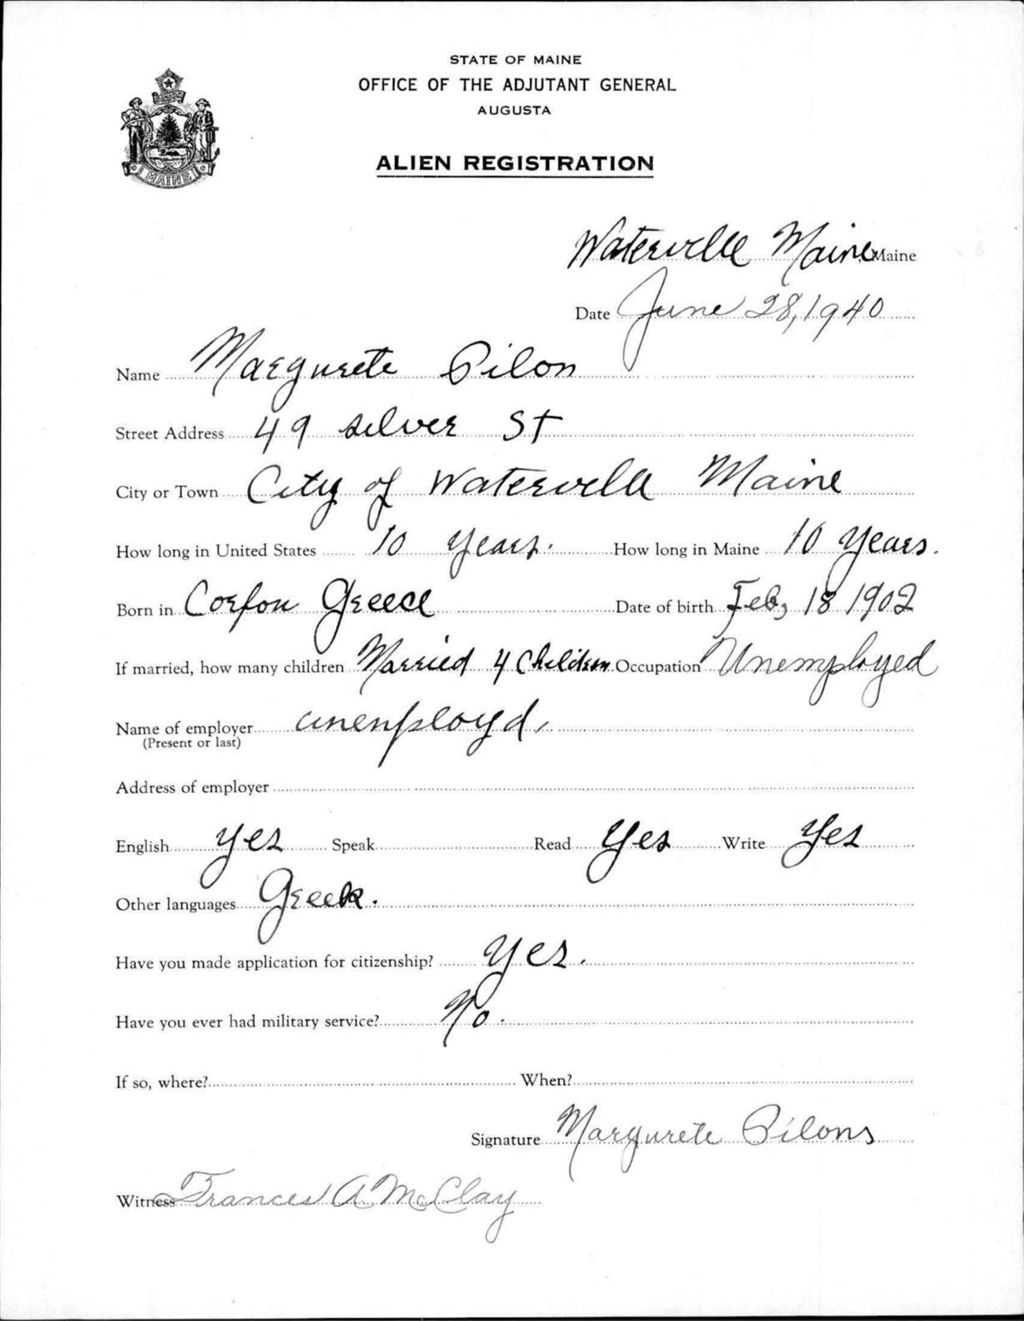 STATE OF MAINE
OFFICE OF THE ADJUTANT GENERAL
AUGUSTA
ALIEN REGISTRATION
MAINE
Waterville Maine, Maine
Date June 28, 1940
Name Margurete Pilon
Street Address 49 Silver St
City or Town City of Waterville Maine
How long in United States 10 years. How long in Maine 10 years.
Born in Corfou Greece Date of birth Feb, 18 1902
If married, how many children Married 4 Children Occupation Unemployed
Name of employer unenployd,
(Present or last)
Address of employer
English yes Speak Read Yes Write Yes
Other languages Greek.
Have you made application for citizenship? Yes.
Have you ever had military service? No.
If so, where? When?
Signature Margurete Pilons
Witness Frances A McClay